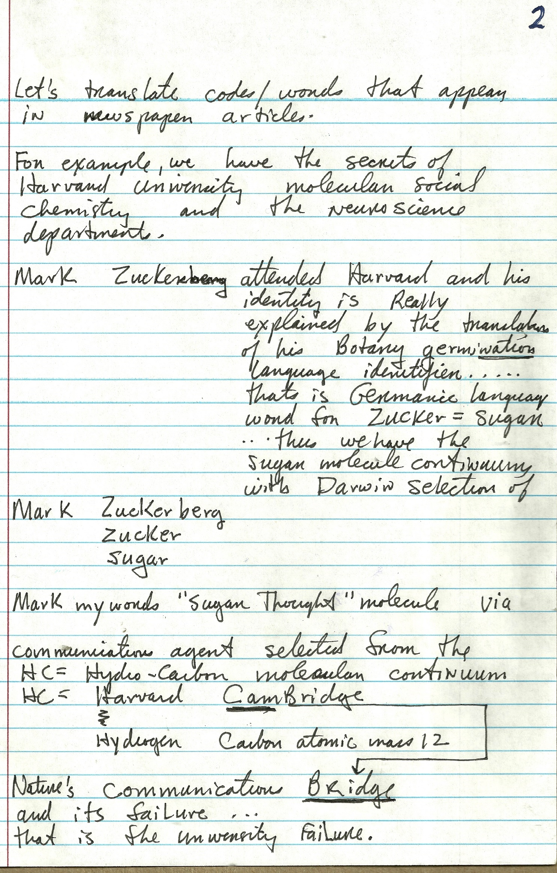 2
Let's translate codes/words that appear
in newspaper articles.
For example, we have the secrets of
Harvard university molecular social
chemistry and the neuroscience
department.
Mark Zuckerberg attended Harvard and his
identity is Really
explained by the translation
of his Botany germination
language identifier.....
that is Germanic language
word for Zucker = sugar
... thus we have the
sugar molecule continuum
with Darwin selection of
Mark Zuckerberg
zucker
sugar
Mark my words "Sugar Thought" molecule via
communication agent selected from the
HC = Hydro-Carbon molecular continuum
HC = Harvard CamBridge
Hydrogen Carbon atomic mass 12
Nature's Communication Bridge
and its failure ...
that is the university Failure.